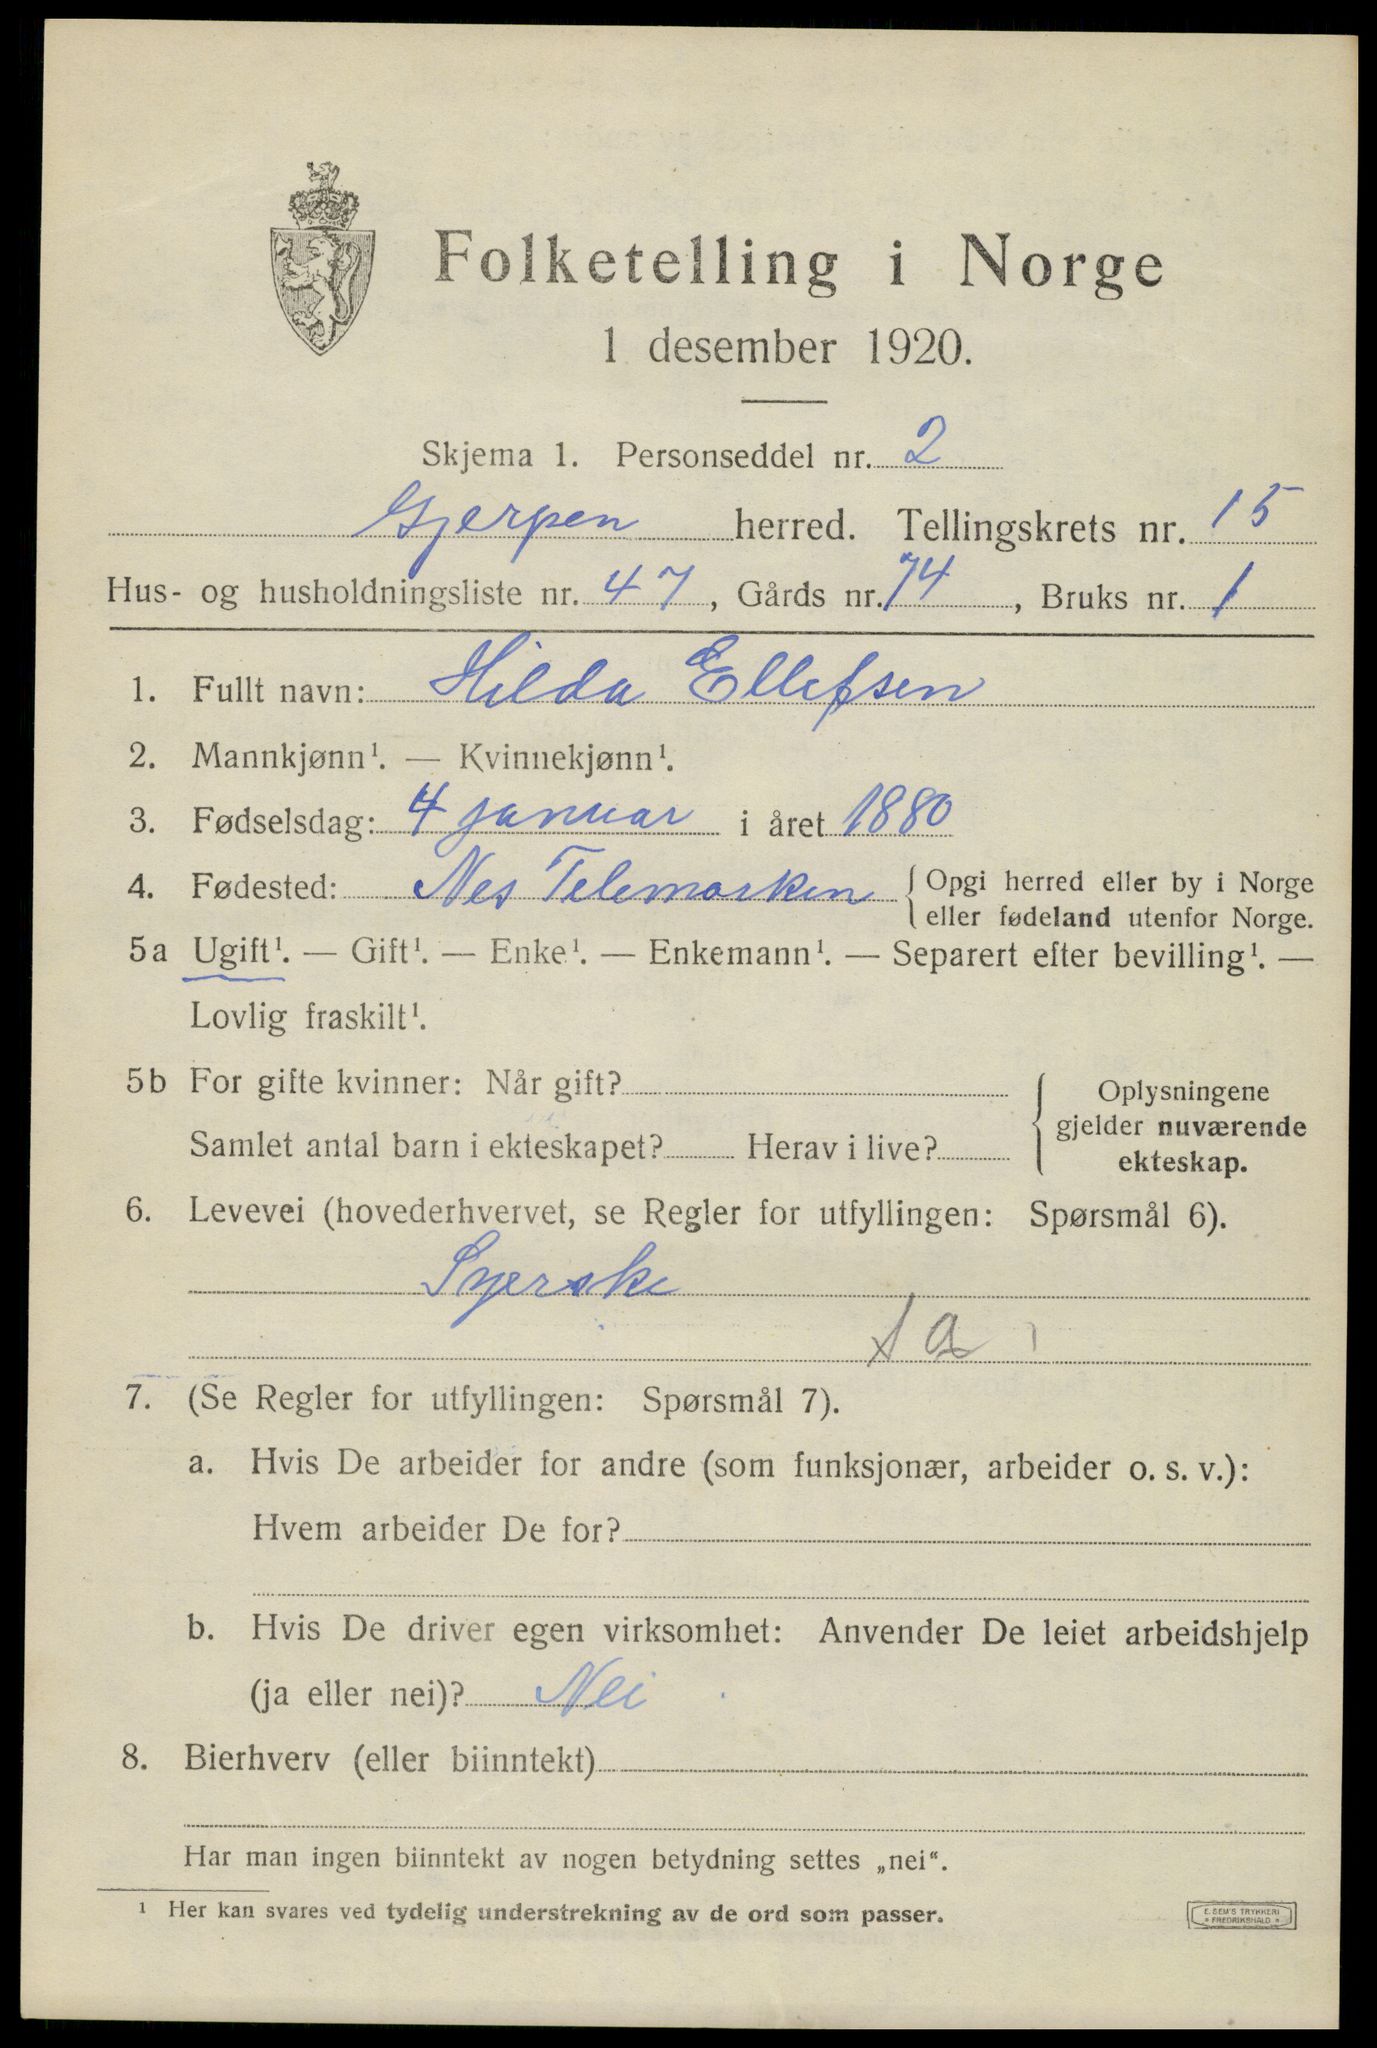 Folketelling i Norge
1 desember 1920.
Skjema 1. Personseddel nr. 2
Gjerpen herred. Tellingskrets nr. 15
Hus- og husholdningsliste nr. 47, Gårds nr. 74, Bruks nr. 1
1. Fullt navn: Hilda Ellefsen
2. Mannkjønn¹. — Kvinnekjønn¹.
3. Fødselsdag: 4 januar i året 1880
4. Fødested: Nes Telemarken { Opgi herred eller by i Norge
eller fødeland utenfor Norge.
5a Ugift¹. — Gift¹. — Enke¹. — Enkemann¹. — Separert efter bevilling¹. —
Lovlig fraskilt¹.
5b For gifte kvinner: Når gift?
Samlet antal barn i ekteskapet? Herav i live?
Oplysningene
gjelder nuværende
ekteskap.
6. Levevei (hovederhvervet, se Regler for utfyllingen: Spørsmål 6).
Syerske
7. (Se Regler for utfyllingen: Spørsmål 7).
a. Hvis De arbeider for andre (som funksjonær, arbeider o. s. v.):
Hvem arbeider De for?
b. Hvis De driver egen virksomhet: Anvender De leiet arbeidshjelp
(ja eller nei)? Nei
8. Bierhverv (eller biinntekt)
Har man ingen biinntekt av nogen betydning settes „nei“.
¹ Her kan svares ved tydelig understrekning av de ord som passer.
E. SEM'S TRYKKERI
* FREDRIKSHALD *